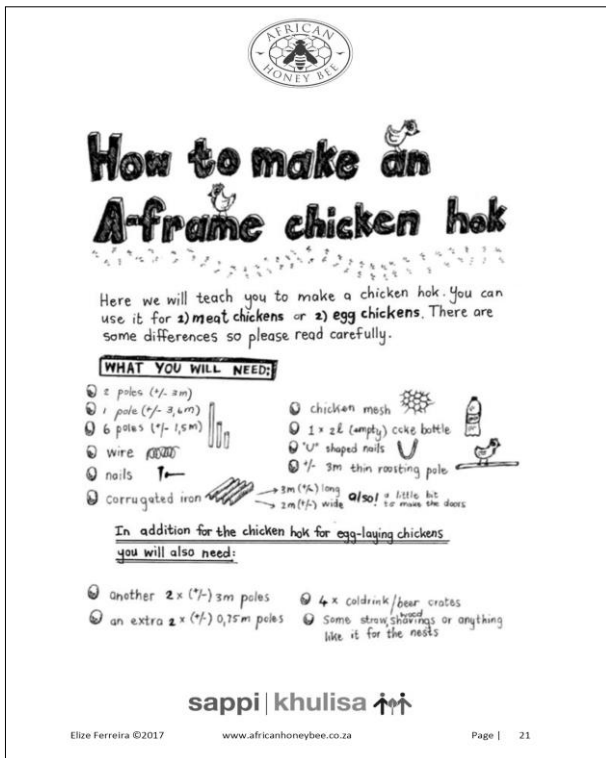 AFRICAN
HONEY BEE
How to make an
A-frame chicken hok
Here we will teach you to make a chicken hok. You can
use it for 1) meat chickens or 2) egg chickens. There are
some differences so please read carefully.
WHAT YOU WILL NEED:
2 poles (+/- 2m)
1 pole (+/- 3,6m)
6 poles (+/- 1,5m)
wire
nails
corrugated iron
3m (+/-) long
2m (+/-) wide
also! a little bit
to make the doors
chicken mesh
1 x 2l (empty) coke bottle
"U" shaped nails
+/- 3m thin roosting pole
In addition for the chicken hok for egg-laying chickens
you will also need:
another 2 x (+/-) 3m poles
an extra 2 x (+/-) 0,75m poles
4 x coldrink/beer crates
Some straw, wood shavings or anything
like it for the nests
sappi | khulisa
Elize Ferreira ©2017 www.africanhoneybee.co.za Page | 21